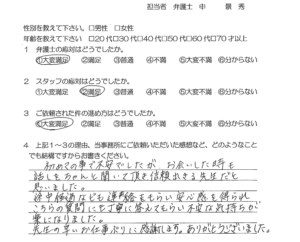 担当者 弁護士 中 景 秀
性別を教えて下さい。□男性 □女性
年齢を教えて下さい □20代□30代□40代□50代□60代□70才以上
1 弁護士の応対はどうでしたか。
①大変満足 ②満足 ③普通 ④不満 ⑤大変不満 ⑥分からない
2 スタッフの応対はどうでしたか。
①大変満足 ②満足 ③普通 ④不満 ⑤大変不満 ⑥分からない
3 ご依頼された件の進め方はどうでしたか。
①大変満足 ②満足 ③普通 ④不満 ⑤大変不満 ⑥分からない
4 上記1~3の理由、当事務所にご依頼いただいた感想など、どのようなこと
でも結構ですからお書きください。
初めての事で不安でしたが お会いした時も
話しをちゃんと聞いて頂き信頼出来る先生だと
思いました。
途中経過なども連絡をもらい安心感を得られ
こちらの質問にも丁寧に答えてもらい不安な気持ちが
楽になりました。
先生の早いお仕事ぶりに感謝します。ありがとうございました。